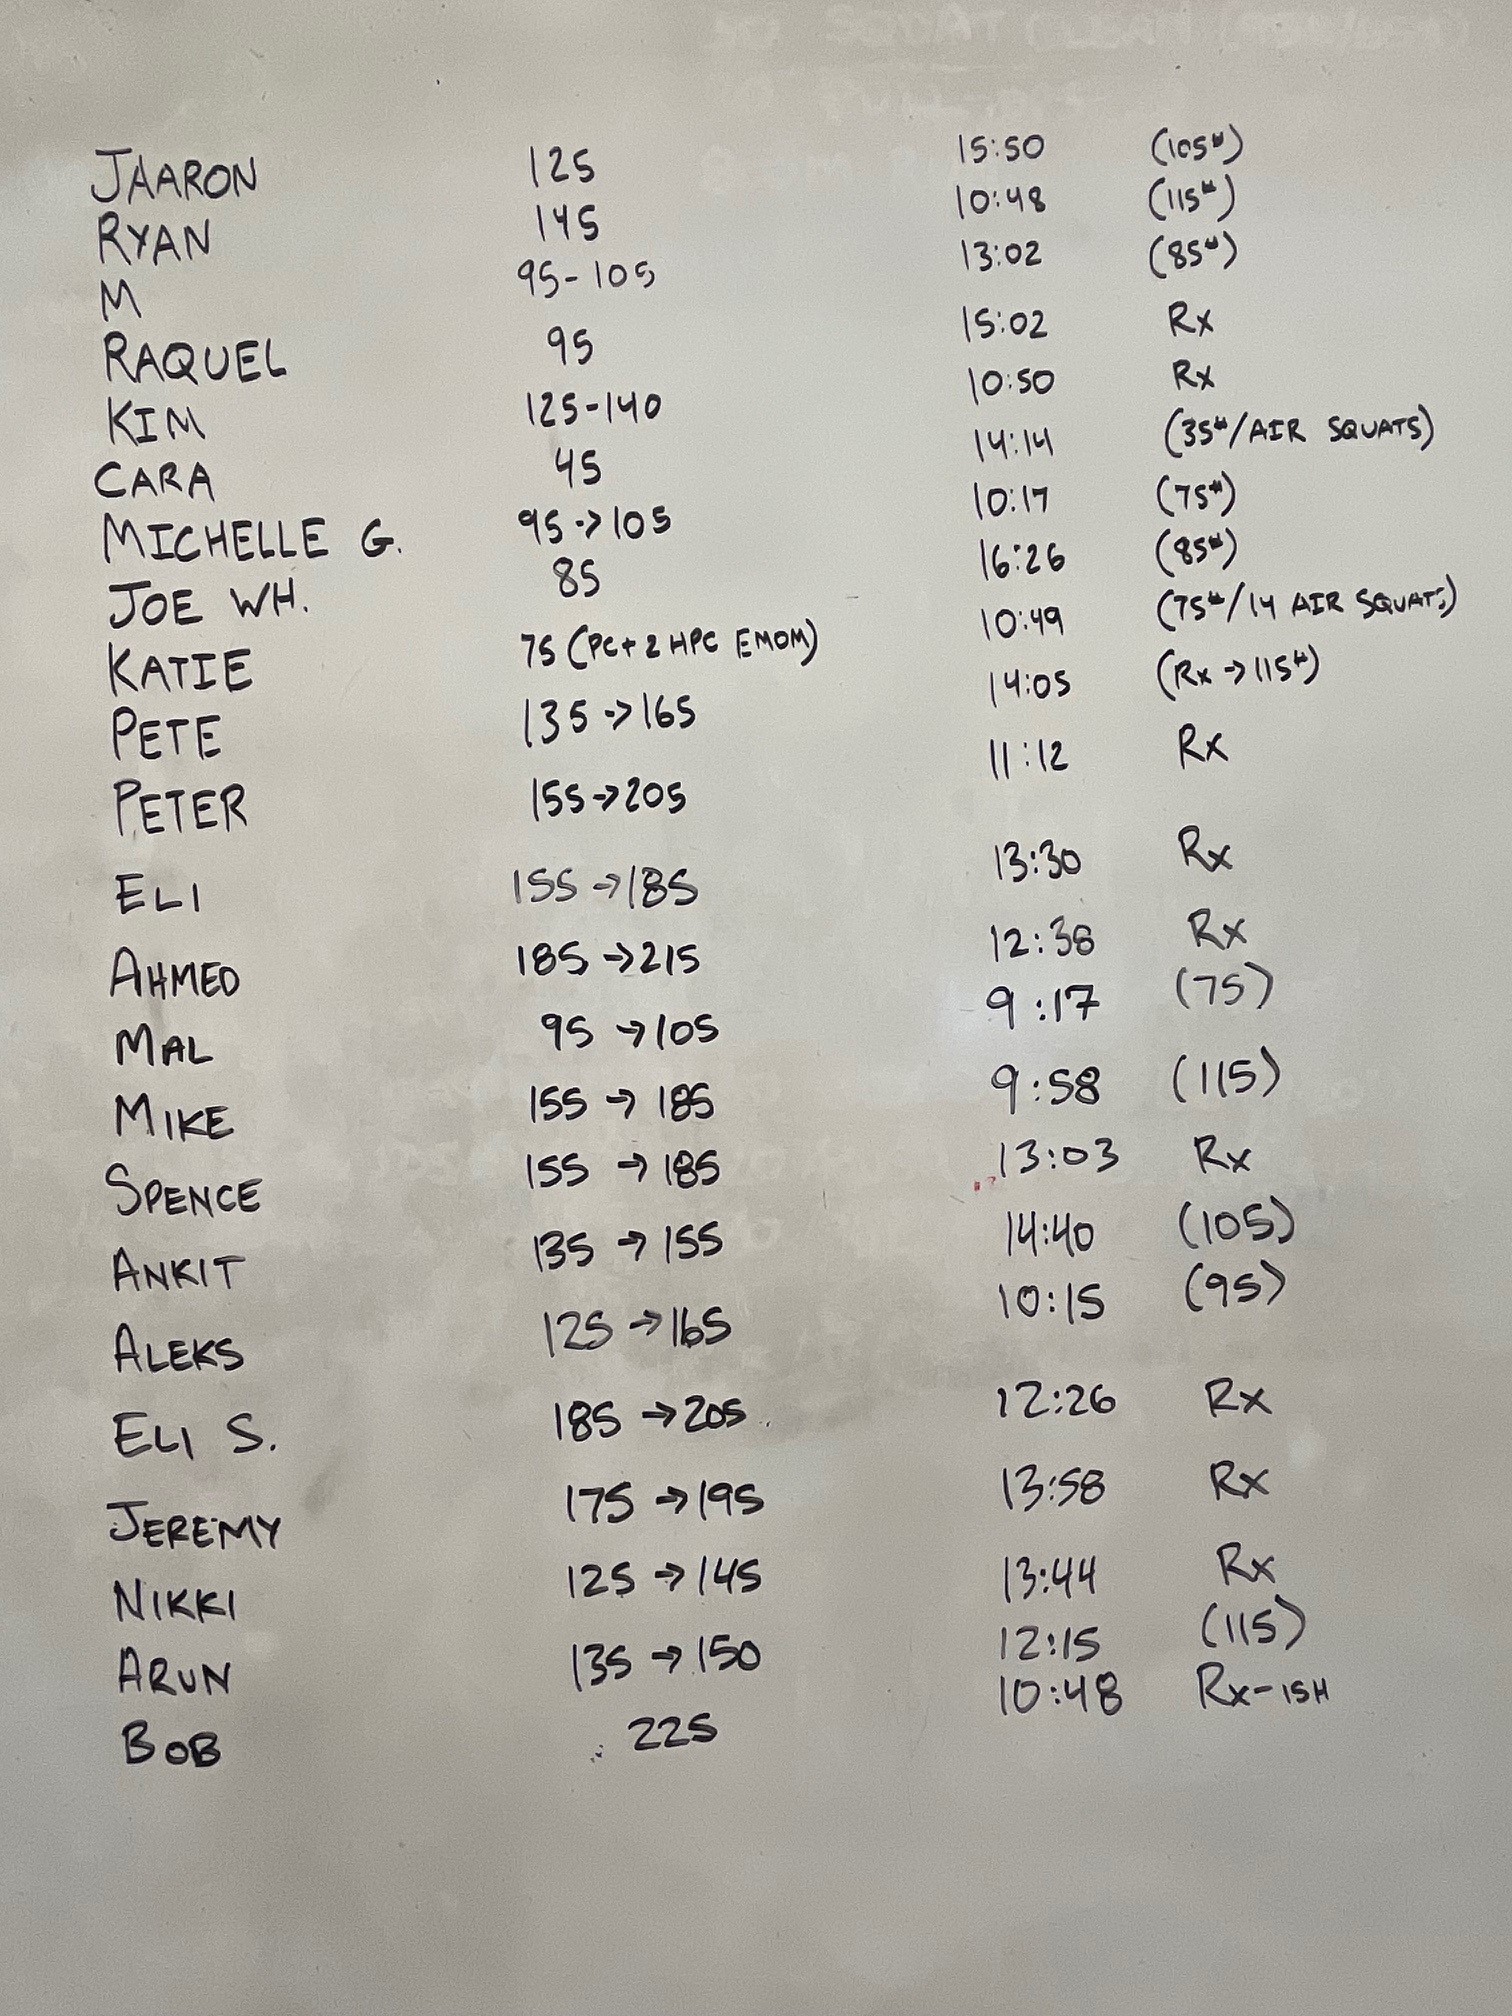 JAARON 125 15:50 (105#)
RYAN 145 10:48 (115#)
M 95-105 13:02 (85#)
RAQUEL 95 15:02 Rx
KIM 125-140 10:50 Rx
CARA 45 14:14 (35#/AIR SQUATS)
MICHELLE G. 95→105 10:17 (75#)
JOE WH. 85 16:26 (85#)
KATIE 75 (PC+2 HPC EMOM) 10:49 (75#/14 AIR SQUATS)
PETE 135→165 14:05 (Rx→115#)
PETER 155→205 11:12 Rx
ELI 155→185 13:30 Rx
AHMED 185→215 12:38 Rx
MAL 95→105 9:17 (75)
MIKE 155→185 9:58 (115)
SPENCE 155→185 13:03 Rx
ANKIT 135→155 14:40 (105)
ALEKS 125→165 10:15 (95)
ELI S. 185→205 12:26 Rx
JEREMY 175→195 13:58 Rx
NIKKI 125→145 13:44 Rx
ARUN 135→150 12:15 (115)
BOB 225 10:48 Rx-ISH